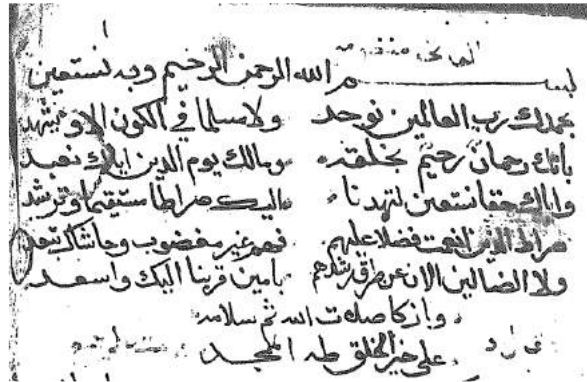 بسم الله الرحمن الرحيم وبه نستعين
بحمدك رب العالمين نوحد ولا سلما في الكون الا و
بانك رحمان رحيم بخلقه ومالك يوم الدين اياك نعبد
واياك حقا نستعين لتهدنا اليك صراطا مستقيما ونرشد
صراط الذين انعمت فضلا عليهم فهم غير مغضوب وحاشاك
ولا الضالين الان عن طرق رشدهم بامين قربنا اليك واسعد
وازكا صلات الله ثم سلامه
على خير الخلق طه الممجد